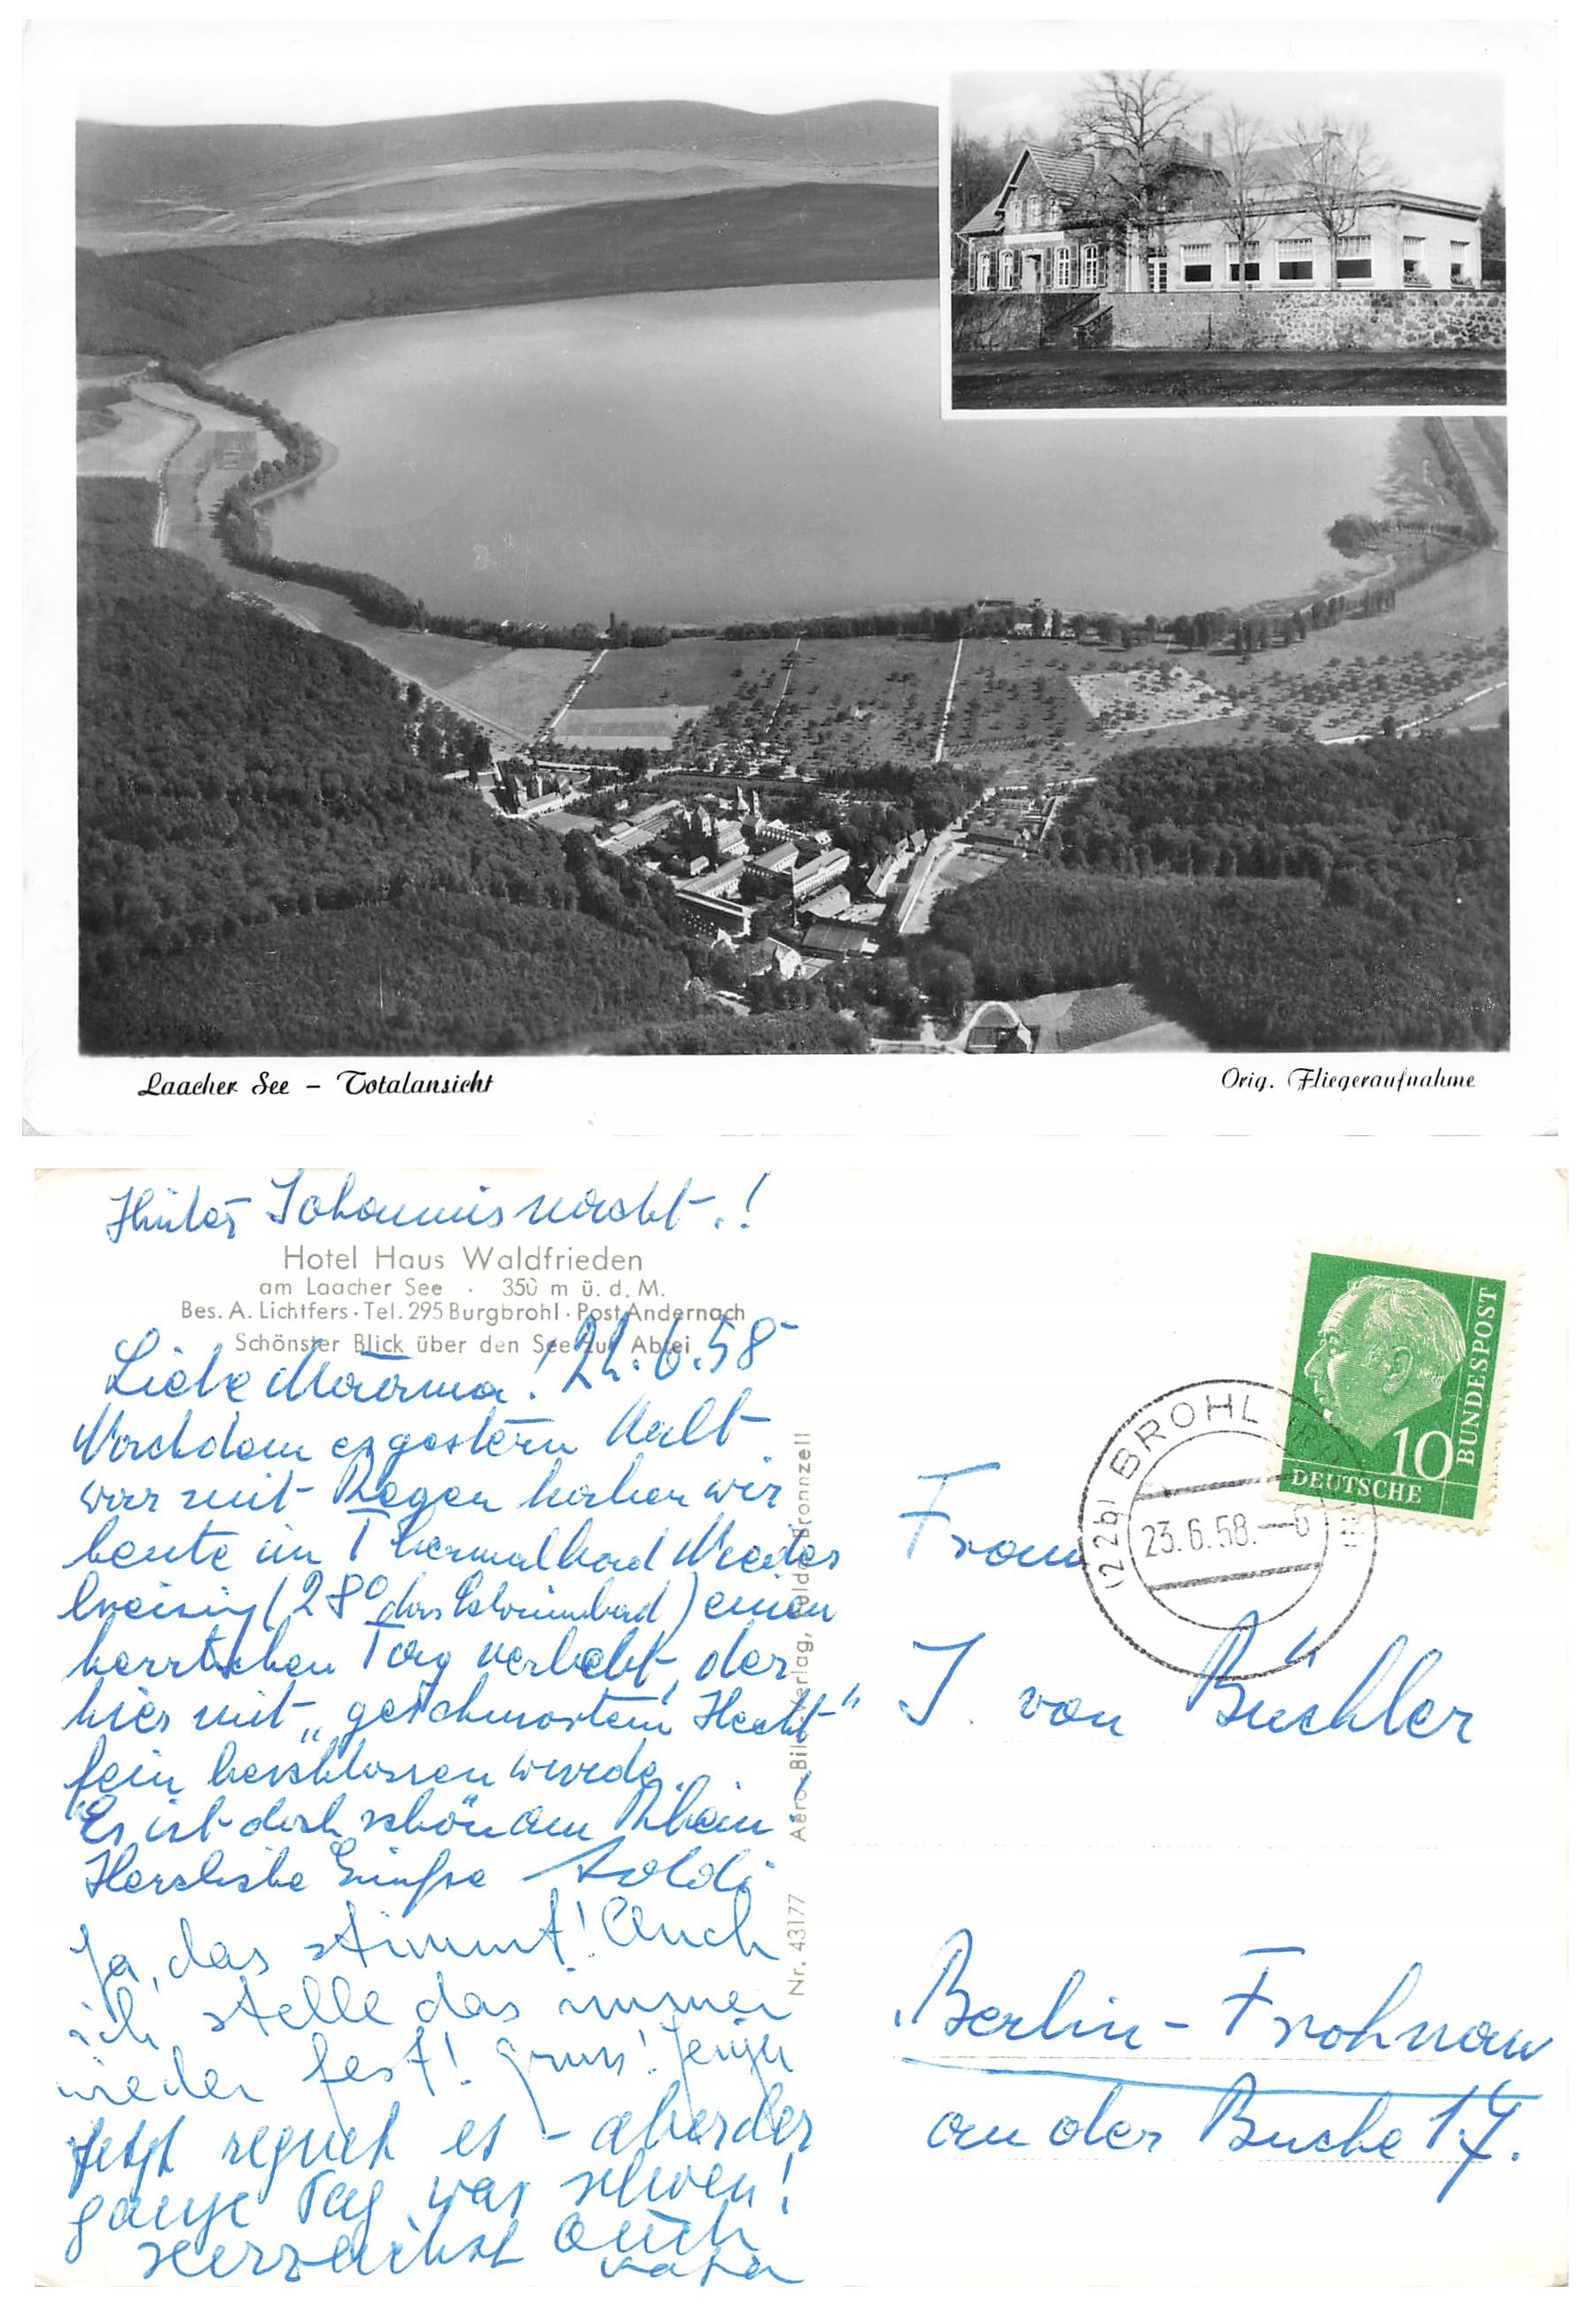 Laacher See – Totalansicht
Orig. Fliegeraufnahme
Johannisnacht.!
Hotel Haus Waldfrieden
am Laacher See · 350 m ü. d. M.
Bes. A. Lichtfers · Tel. 295 Burgbrohl · Post Andernach
Schönster Blick über den See zur Abtei
Liebe ! 22.6.58
Nachdem es gestern kalt
war mit Regen haben wir
heute im Thermalbad Nieder
breisig (28° das Schwimmbad) einen
herrlichen Tag verlebt, der
hier mit „geschmortem Hecht"
fein beschlossen wurde.
Es ist doch schön am Rhein!
Herzliche Grüsse
Ja, das stimmt! Auch
ich stelle das immer
wieder fest! Gruss!
Jetzt regnet es – aber der
ganze Tag war schoen!
Herzlichst Auch
Aero-Bild-Verlag, Fulda-Bronnzell
Nr. 43177
DEUTSCHE
BUNDESPOST
10
(22b) BROHL
23.6.58.–6
Frau
J. von Büchler
Berlin-Frohnau
an der Buche 17.